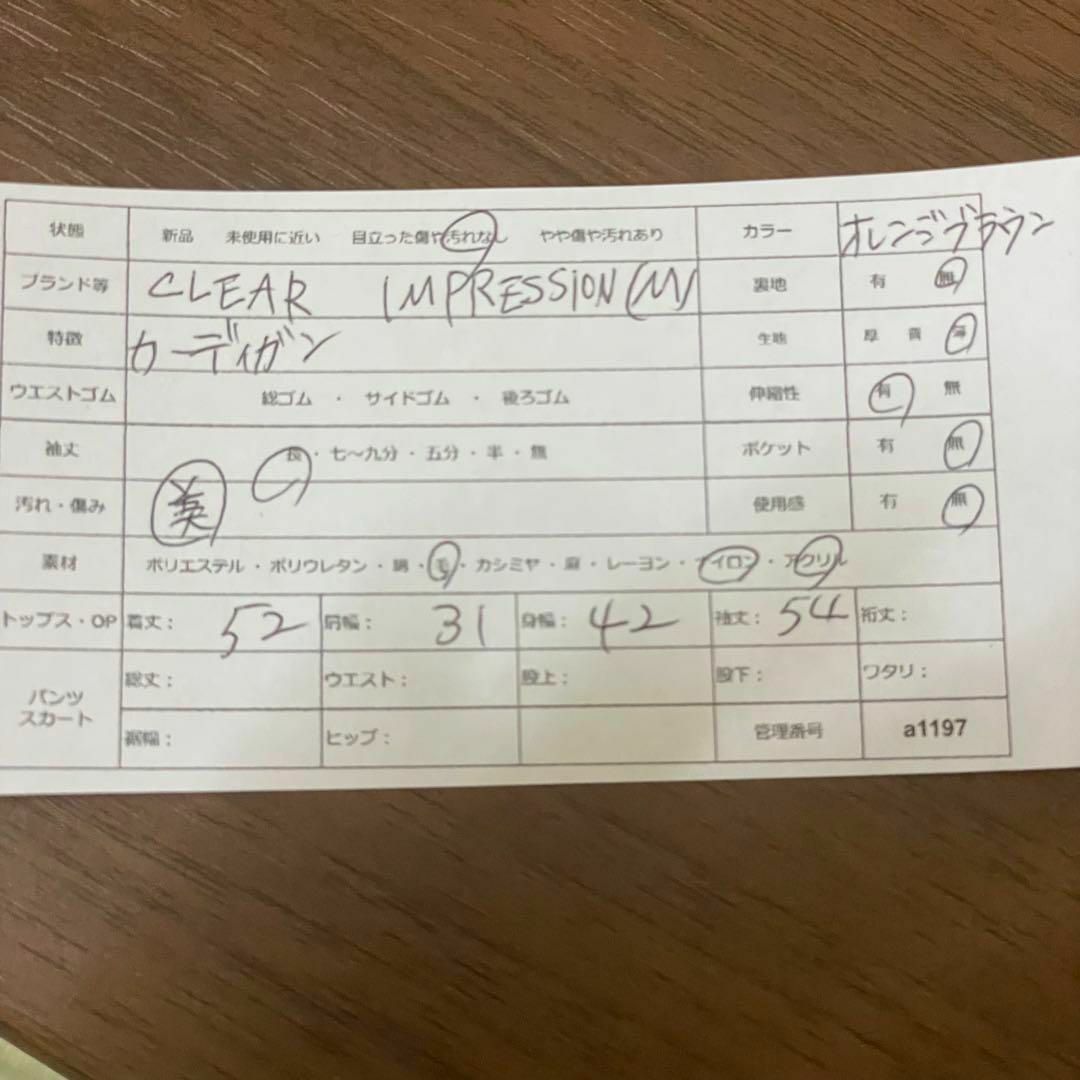 状態 新品 未使用に近い 目立った傷や汚れなし やや傷や汚れあり カラー オレンジブラウン
ブランド等 CLEAR IMPRESSION(M) 裏地 有 無
特徴 カーディガン 生地 厚 普 薄
ウエストゴム 総ゴム ・ サイドゴム ・ 後ろゴム 伸縮性 有 無
袖丈 長・七〜九分・五分・半・無 ポケット 有 無
汚れ・傷み 美 使用感 有 無
素材 ポリエステル・ポリウレタン・綿・毛・カシミヤ・麻・レーヨン・ナイロン・アクリル
トップス・OP 着丈: 52 肩幅: 31 身幅: 42 袖丈: 54 裄丈:
パンツ スカート 総丈: ウエスト: 股上: 股下: ワタリ:
裾幅: ヒップ: 管理番号 a1197